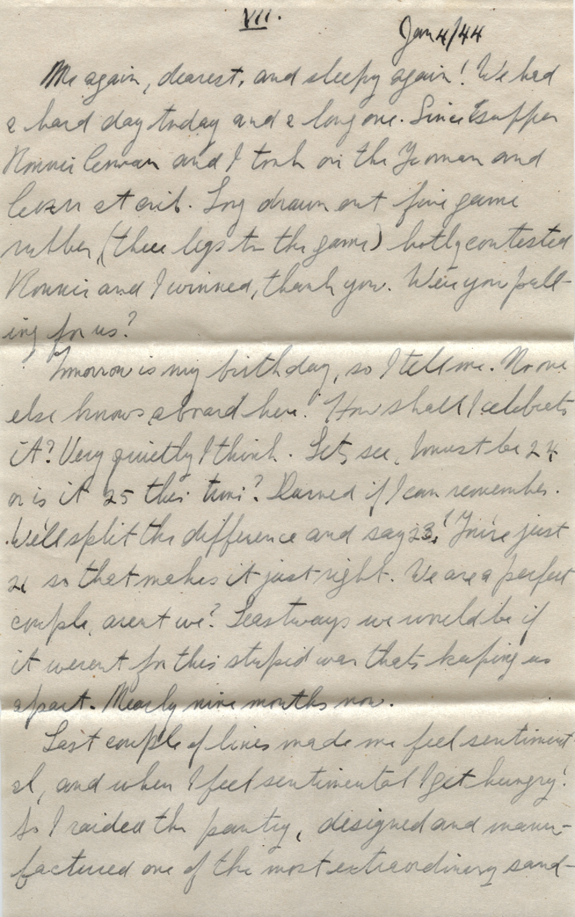 VII.
Jan 4/44
Me again, dearest, and sleepy again! We had
a hard day today and a long one. Since supper
Ronnie and I took on the Yeoman and
at crib. Long drawn out five game
rubber (three legs to the game) hotly contested
Ronnie and I winned, thank you. Were you pull-
ing for us?
Tomorrow is my birthday, so I tell me. No one
else knows aboard here. How shall I celebrate
it? Very quietly I think. Lets see, I must be 24
or is it 25 this time? Darned if I can remember.
We'll split the difference and say 23! You're just
21 so that makes it just right. We are a perfect
couple, arent we? Leastways we would be if
it werent for this stupid war thats keeping us
apart. Nearly nine months now.
Last couple of lines made me feel sentiment-
al, and when I feel sentimental I get hungry!
So I raided the pantry, designed and manu-
factured one of the most extraordinary sand-